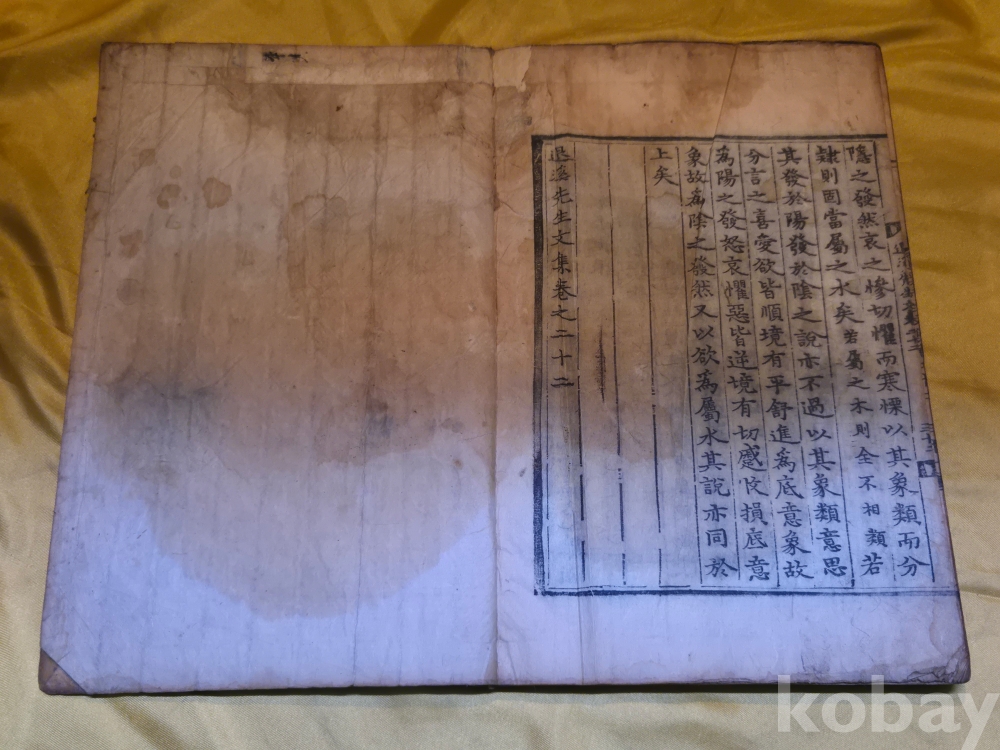 隱之發然哀之慘切懼而寒慄以其象類而分
隸則固當屬之水矣若屬之木則全不相類若
其發於陽發於陰之說亦不過以其象類意思
分言之喜愛欲皆順境有平舒進爲底意象故
爲陽之發怒哀懼惡皆逆境有切蹙損底意
象故爲陰之發然又以欲爲屬水其說亦同於
上矣
退溪先生文集卷之二十二
kobay